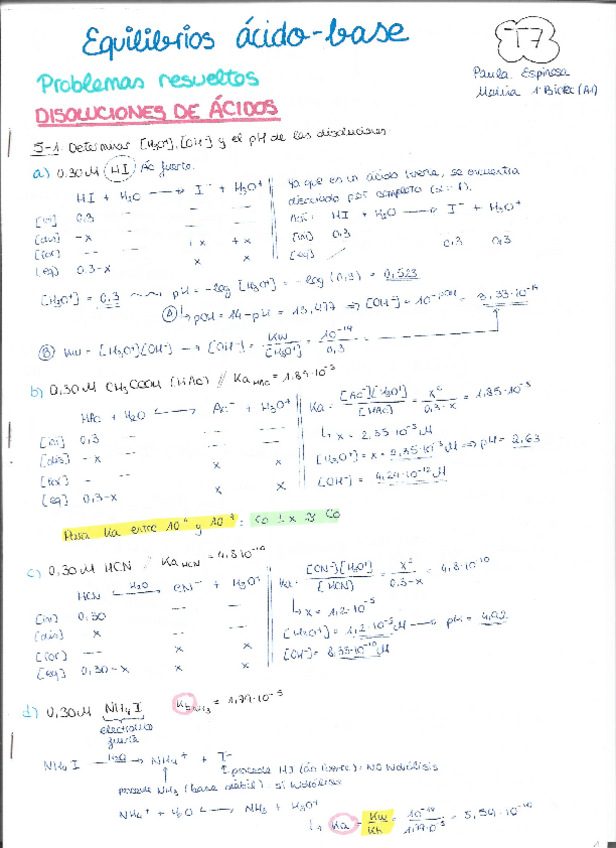 Equilibrios ácido-base
T7
Problemas resueltos
Paula Espinosa
DISOLUCIONES DE ÁCIDOS
5-1 Determinar [H₃O⁺], [OH⁻] y el pH de las disoluciones
a) 0,30M HI Ác fuerte.
HI + H₂O ⟶ I⁻ + H₃O⁺
[in] 0,3 -- -- --
[dis] -x -- --
[for] -- -- +x +x
[eq] 0,3-x x x
Ya que es un ácido fuerte, se encuentra
disociado por completo (α = 1).
HI + H₂O ⟶ I⁻ + H₃O⁺
[in] 0,3
[eq] 0,3 0,3
[H₃O⁺] = 0,3 ⟶ pH = -log [H₃O⁺] = -log (0,3) = 0,523
(A) pOH = 14-pH = 13,477 ⇒ [OH⁻] = 10^-pOH = 3,33·10⁻¹⁴
(B) Kw = [H₃O⁺][OH⁻] ⟶ [OH⁻] = Kw/[H₃O⁺] = 10⁻¹⁴/0,3
b) 0,30M CH₃COOH (HAc) // Ka HAc = 1,85·10⁻⁵
HAc + H₂O ⟷ Ac⁻ + H₃O⁺
[in] 0,3 -- -- --
[dis] -x -- --
[for] - x x
[eq] 0,3-x x x
Ka = [Ac⁻][H₃O⁺]/[HAc] = x²/0,3-x = 1,85·10⁻⁵
x = 2,35·10⁻³M
[H₃O⁺] = x = 2,35·10⁻³M ⇒ pH = 2,63
[OH⁻] = 4,24·10⁻¹²M
Para Ka entre
c) 0,30M HCN // Ka HCN = 4,8·10⁻¹⁰
HCN ⟷ H₂O CN⁻ + H₃O⁺
[in] 0,30 -- --
[dis] x -- --
[for] -- x x
[eq] 0,30-x x x
Ka = [CN⁻][H₃O⁺]/[HCN] = x²/0,3-x = 4,8·10⁻¹⁰
x = 1,2·10⁻⁵
[H₃O⁺] = 1,2·10⁻⁵M ⟶ pH = 4,92
[OH⁻] = 8,33·10⁻¹⁰M
d) 0,30M NH₄I Kb NH₃ = 1,79·10⁻⁵
electrolito
fuerte
NH₄I H₂O ⟶ NH₄⁺ + I⁻
procede HI (ác fuerte): NO hidrólisis
procede NH₃ (base débil): sí hidrólisis
NH₄⁺ + H₂O ⟷ NH₃ + H₃O⁺
Ka = Kw/Kb = 10⁻¹⁴/1,79·10⁻⁵ = 5,59·10⁻¹⁰